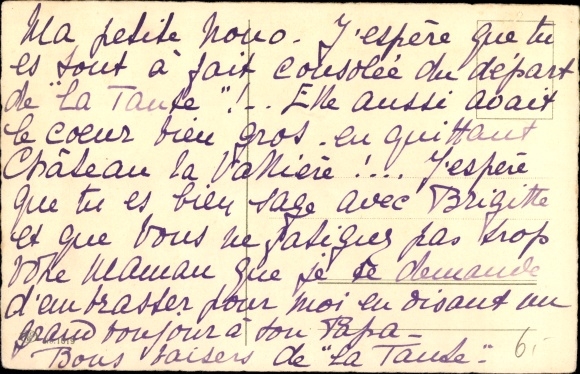 Ma petite Nono. J'espère que tu
es tout à fait consolée du départ
de "La Tante"!... Elle aussi avait
le coeur bien gros. en quittant
Château la Vallière!... J'espère
que tu es bien sage avec Brigitte
et que vous ne fatiguez pas trop
votre Maman que je te demande
d'embrasser pour moi en disant un
grand bonjour à ton Papa -
Bons baisers de "La Tante".
6.-